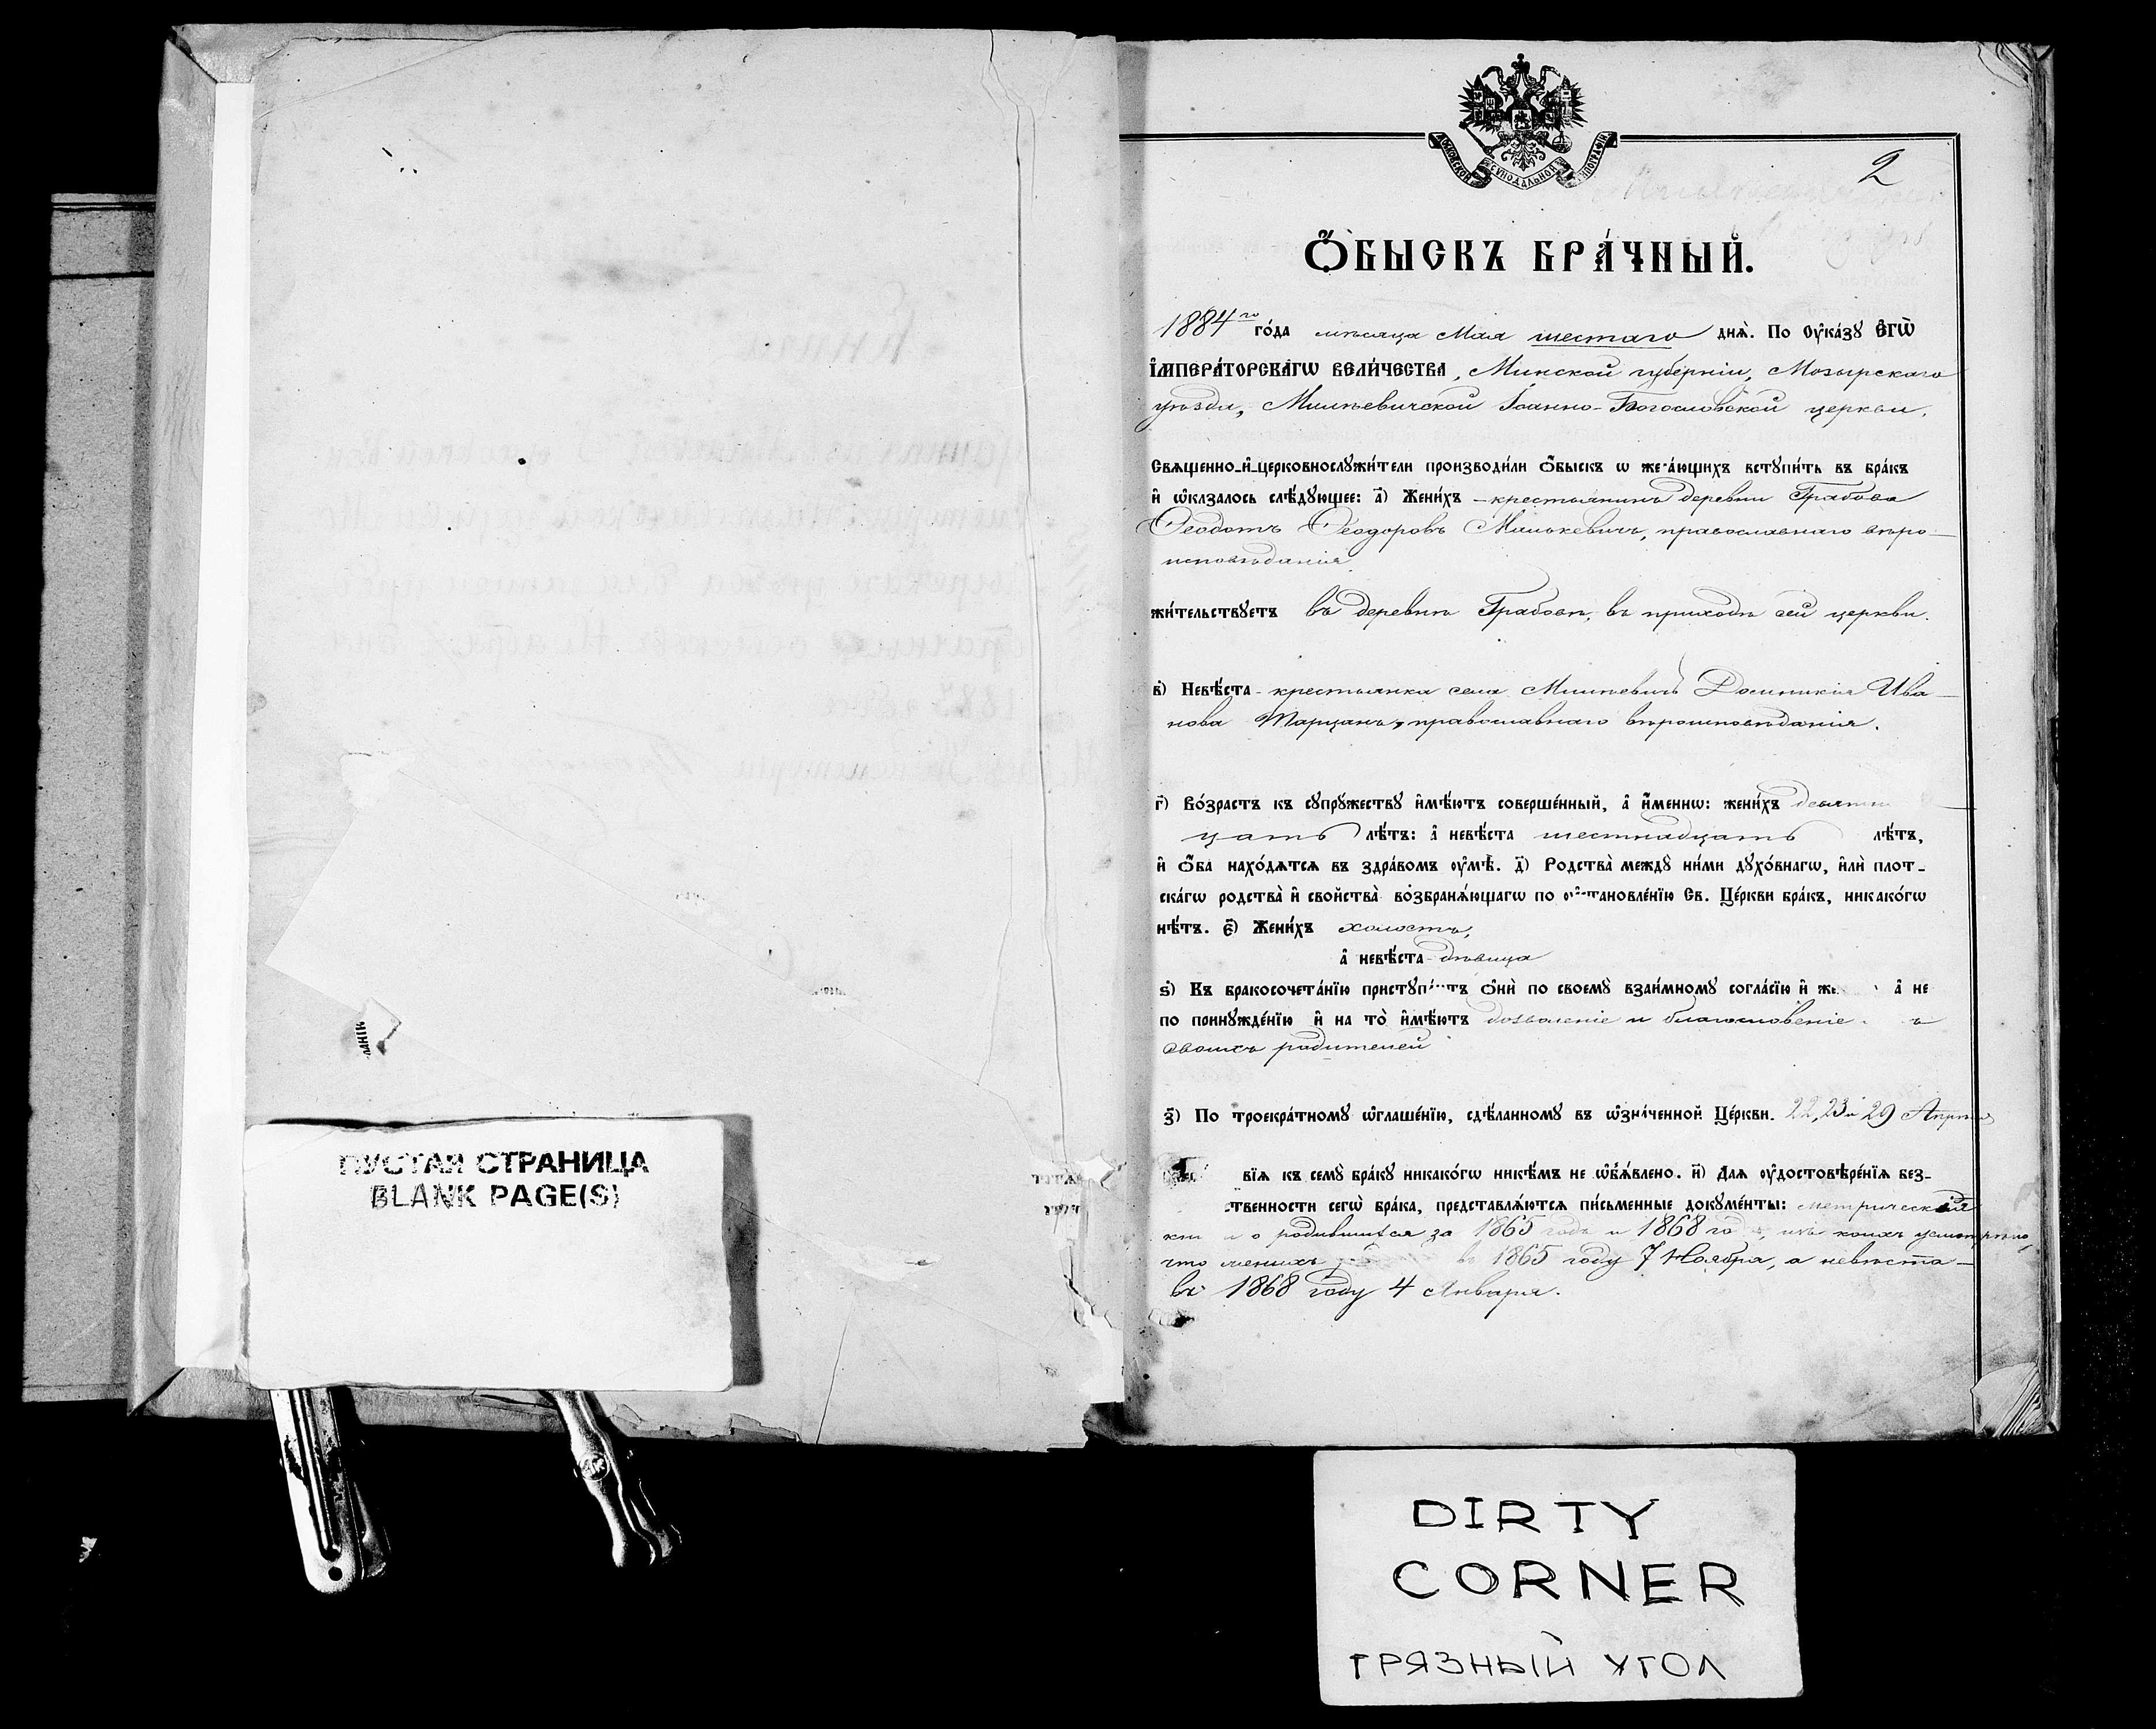 ПУСТАЯ СТРАНИЦА
BLANK PAGE(S)
МОСКОВСКОЙ СѴНОДАЛЬНОЙ ТИПОГРАФІИ
2
Ѻ҆БЫСКЪ БРА́ЧНЫЙ.
1884го го́да мѣсяца Мая шестаго днѧ̀. По Оу҆ка́зꙋ Є҆ГѠ̀
І҆МПЕРА́ТОРСКАГѠ ВЕЛИ́ЧЕСТВА, Минской губерніи, Мозырскаго
уѣзда, Милѣевичской Іоанно-Богословской церкви.
Свѧщенно-и҆-церковнослꙋжи́тели производи́ли ѻ҆́быскъ ѡ же а́ющихъ вступи́ть въ бра́къ
и҆ ѡ҆казалось слѣ́дꙋющее: а҃) Жени́хъ - крестьянинъ деревни Грабова
Ѳеодотъ Ѳеодоровъ Милькевичъ, православнаго вѣро-
исповѣданія
жи́тельствꙋетъ въ деревнѣ Грабовѣ, въ приходѣ сей церкви.
в҃) Невѣ́ста - крестьянка села Милѣевичъ Доминикія Ива-
нова Тарцанъ, православнаго вѣроисповѣданія.
г҃) Во́зрастъ къ сꙋпрꙋ́жествꙋ и҆мѣ́ютъ соверше́нный, а҆ и҆́меннѡ: жени́хъ девятнад
цать лѣ́тъ: а҆ невѣ́ста шестнадцать лѣ́тъ,
и҆ ѻ҆́ба нахо́дѧтсѧ въ здра́вомъ оу҆мѣ̀. д҃) Родства̀ междꙋ̀ ни́ми дꙋхо́внагѡ, и҆лѝ плот-
ска́гѡ родства̀ и҆ свойства̀ возбранѧ́ющагѡ по оу҆становле́нїю Св. Це́ркви бра́къ, никако́гѡ
нѣ́тъ. є҃) Жени́хъ холостъ,
а҆ невѣ́ста дѣвица
ѕ҃) Къ бракосочета́нїю приступ тъ ѻ҆нѝ по своемꙋ̀ взаи́мномꙋ согла́сїю и҆ же а҆ не
по принꙋжде́нїю и҆ на то̀ и҆мѣ́ютъ дозволеніе и благословеніе
своихъ родителей
з҃) По троекра́тномꙋ ѡ҆глаше́нїю, сдѣ́ланномꙋ въ ѡ҆зна́ченной Це́ркви. 22, 23 и 29 Апрѣля
вїѧ къ семꙋ̀ бра́кꙋ никако́гѡ никѣ́мъ не ѡ҆б̾ѧ́влено. и҃) Длѧ оу҆достовѣре́нїѧ без-
твенности сегѡ̀ бра́ка, представлѧ́ютсѧ пи́сьменные докꙋме́нты: метрическія
кни и о родившихся за 1865 годъ и 1868 го, изъ коихъ усмотрѣно,
что женихъ въ 1865 году 7 Ноября, а невѣста -
въ 1868 году 4 Января.
DIRTY
CORNER
ГРЯЗНЫЙ УГОЛ